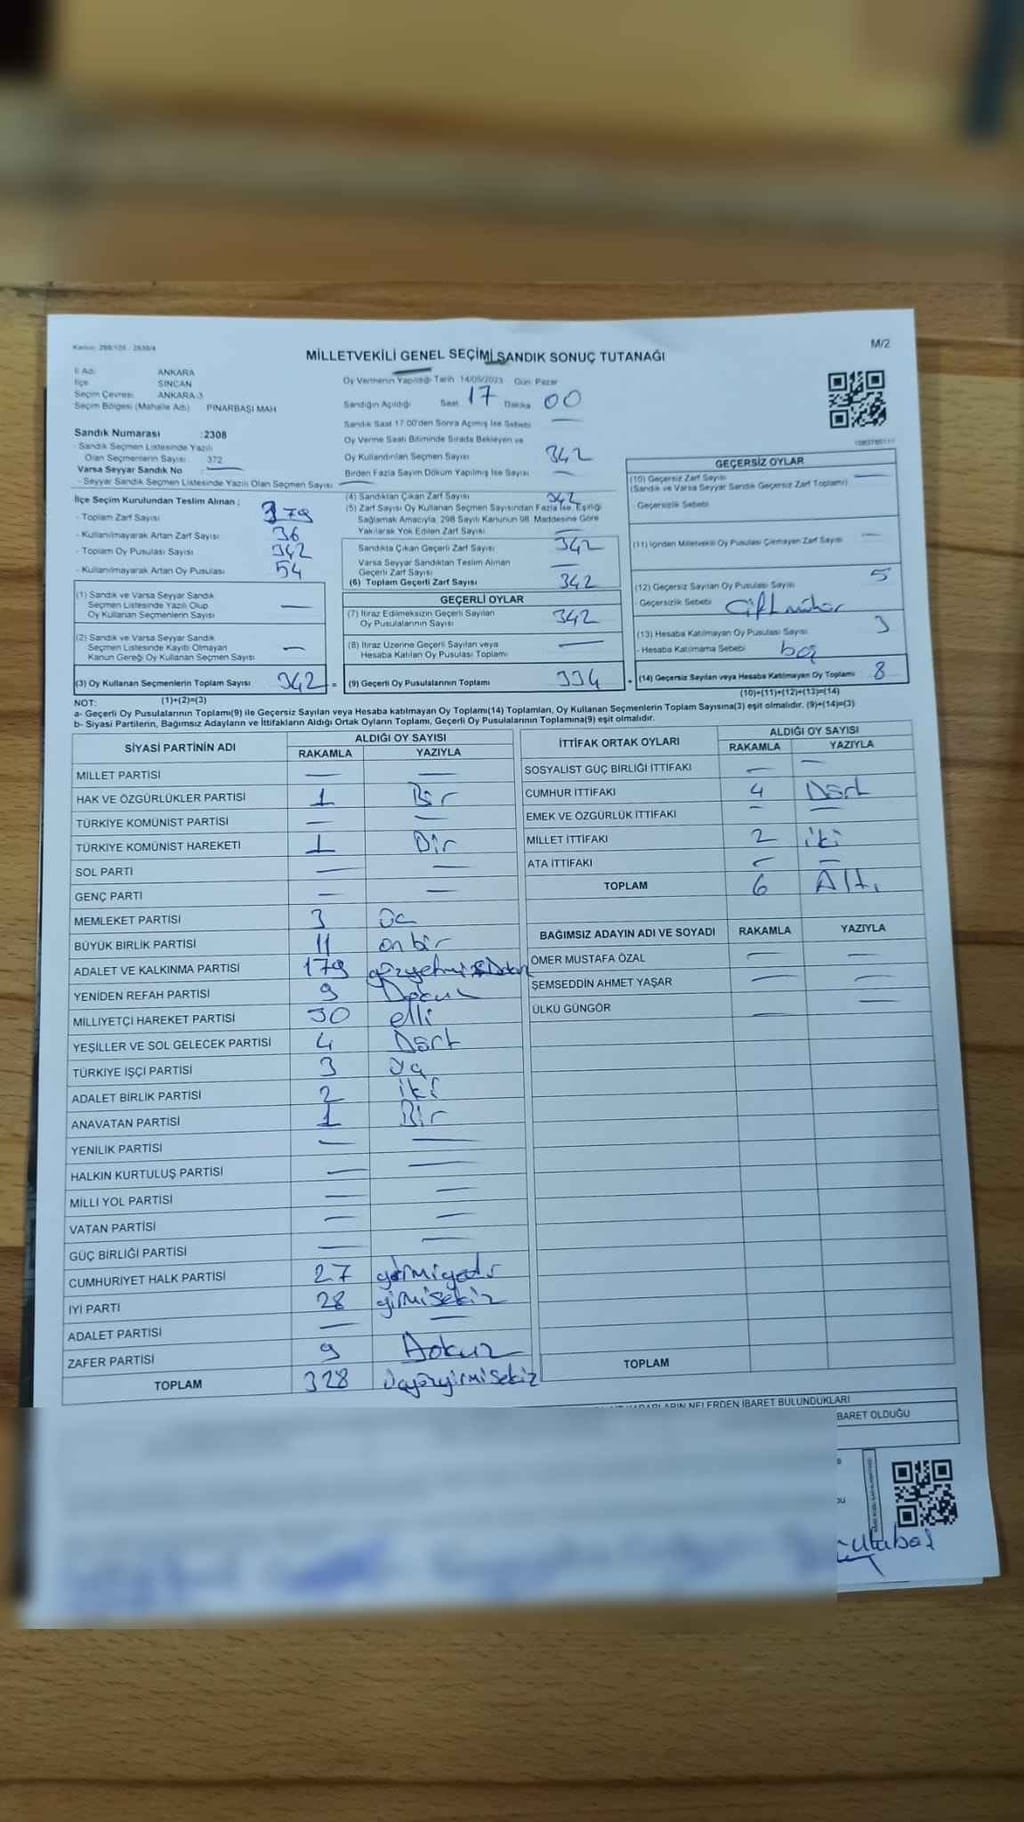 M/2
MİLLETVEKİLİ GENEL SEÇİMİ SANDIK SONUÇ TUTANAĞI
İl Adı ANKARA
İlçe SİNCAN
Seçim Çevresi ANKARA-3
Seçim Bölgesi (Mahalle Adı) PINARBAŞI MAH
Sandık Numarası :2308
- Sandık Seçmen Listesinde Yazılı
Olan Seçmenlerin Sayısı 372
Varsa Seyyar Sandık No
- Seyyar Sandık Seçmen Listesinde Yazılı Olan Seçmen Sayısı
Oy Vermenin Yapıldığı Tarih 14/05/2023 Gün: Pazar
Sandığın Açıldığı Saat 17 Dakika 00
Sandık Saat 17:00'den Sonra Açılmış İse Sebebi
Oy Verme Saati Bitiminde Sırada Bekleyen ve
Oy Kullandırılan Seçmen Sayısı 342
Birden Fazla Sayım Döküm Yapılmış İse Sayısı
İlçe Seçim Kurulundan Teslim Alınan :
- Toplam Zarf Sayısı 379
- Kullanılmayarak Artan Zarf Sayısı 36
- Toplam Oy Pusulası Sayısı 342
- Kullanılmayarak Artan Oy Pusulası 54
(1) Sandık ve Varsa Seyyar Sandık
Seçmen Listesinde Yazılı Olup
Oy Kullanan Seçmenlerin Sayısı —
(2) Sandık ve Varsa Seyyar Sandık
Seçmen Listesinde Kayıtlı Olmayan
Kanun Gereği Oy Kullanan Seçmen Sayısı —
(3) Oy Kullanan Seçmenlerin Toplam Sayısı 342 =
(1)+(2)=(3)
(4) Sandıktan Çıkan Zarf Sayısı 342
(5) Zarf Sayısı Oy Kullanan Seçmen Sayısından Fazla İse, Eşitliği
Sağlamak Amacıyla, 298 Sayılı Kanunun 98. Maddesine Göre
Yakılarak Yok Edilen Zarf Sayısı —
Sandıkta Çıkan Geçerli Zarf Sayısı 342
Varsa Seyyar Sandıktan Teslim Alınan
Geçerli Zarf Sayısı —
(6) Toplam Geçerli Zarf Sayısı 342
GEÇERLİ OYLAR
(7) İtiraz Edilmeksizin Geçerli Sayılan
Oy Pusulalarının Sayısı 342
(8) İtiraz Üzerine Geçerli Sayılan veya
Hesaba Katılan Oy Pusulası Toplamı —
(9) Geçerli Oy Pusulalarının Toplamı 334 +
GEÇERSİZ OYLAR
(10) Geçersiz Zarf Sayısı
(Sandık ve Varsa Seyyar Sandık Geçersiz Zarf Toplamı) —
- Geçersizlik Sebebi
(11) İçinden Milletvekili Oy Pusulası Çıkmayan Zarf Sayısı —
(12) Geçersiz Sayılan Oy Pusulası Sayısı 5
Geçersizlik Sebebi Çift mühür
(13) Hesaba Katılmayan Oy Pusulası Sayısı 3
- Hesaba Katılmama Sebebi boş
(14) Geçersiz Sayılan veya Hesaba Katılmayan Oy Toplamı 8
(10)+(11)+(12)+(13)=(14)
NOT:
a- Geçerli Oy Pusulalarının Toplamı(9) ile Geçersiz Sayılan veya Hesaba katılmayan Oy Toplamı(14) Toplamları, Oy Kullanan Seçmenlerin Toplam Sayısına(3) eşit olmalıdır. (9)+(14)=(3)
b- Siyasi Partilerin, Bağımsız Adayların ve İttifakların Aldığı Ortak Oyların Toplamı, Geçerli Oy Pusulalarının Toplamına(9) eşit olmalıdır.
SİYASİ PARTİNİN ADI ALDIĞI OY SAYISI
RAKAMLA YAZIYLA
MİLLET PARTİSİ — —
HAK VE ÖZGÜRLÜKLER PARTİSİ 1 Bir
TÜRKİYE KOMÜNİST PARTİSİ — —
TÜRKİYE KOMÜNİST HAREKETİ 1 Bir
SOL PARTİ — —
GENÇ PARTİ — —
MEMLEKET PARTİSİ 3 üç
BÜYÜK BİRLİK PARTİSİ 11 onbir
ADALET VE KALKINMA PARTİSİ 179
YENİDEN REFAH PARTİSİ 9 Dokuz
MİLLİYETÇİ HAREKET PARTİSİ 50 elli
YEŞİLLER VE SOL GELECEK PARTİSİ 4 Dört
TÜRKİYE İŞÇİ PARTİSİ 3 üç
ADALET BİRLİK PARTİSİ 2 iki
ANAVATAN PARTİSİ 1 Bir
YENİLİK PARTİSİ — —
HALKIN KURTULUŞ PARTİSİ — —
MİLLİ YOL PARTİSİ — —
VATAN PARTİSİ — —
GÜÇ BİRLİĞİ PARTİSİ — —
CUMHURİYET HALK PARTİSİ 27 yirmiyedi
İYİ PARTİ 28 yirmisekiz
ADALET PARTİSİ — —
ZAFER PARTİSİ 9 Dokuz
TOPLAM 328 üçyüzyirmisekiz
İTTİFAK ORTAK OYLARI ALDIĞI OY SAYISI
RAKAMLA YAZIYLA
SOSYALİST GÜÇ BİRLİĞİ İTTİFAKI — —
CUMHUR İTTİFAKI 4 Dört
EMEK VE ÖZGÜRLÜK İTTİFAKI — —
MİLLET İTTİFAKI 2 iki
ATA İTTİFAKI — —
TOPLAM 6 Altı
BAĞIMSIZ ADAYIN ADI VE SOYADI RAKAMLA YAZIYLA
ÖMER MUSTAFA ÖZAL — —
ŞEMSEDDİN AHMET YAŞAR — —
ÜLKÜ GÜNGÖR — —
TOPLAM
NELERDEN İBARET BULUNDUKLARI
İBARET OLDUĞU